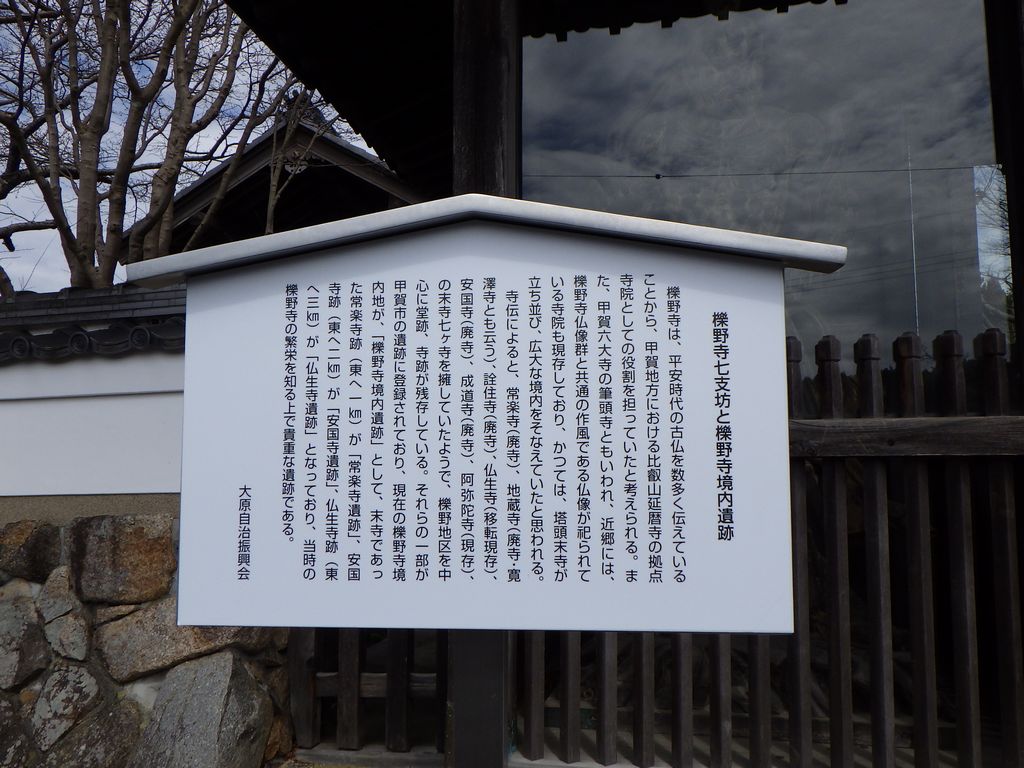 櫟野寺七支坊と櫟野寺境内遺跡
櫟野寺は、平安時代の古仏を数多く伝えている
ことから、甲賀地方における比叡山延暦寺の拠点
寺院としての役割を担っていたと考えられる。ま
た、甲賀六大寺の筆頭寺ともいわれ、近郷には、
櫟野寺仏像群と共通の作風である仏像が祀られて
いる寺院も現存しており、かつては、塔頭末寺が
立ち並び、広大な境内をそなえていたと思われる。
寺伝によると、常楽寺(廃寺)、地蔵寺(廃寺・寛
澤寺とも云う)、詮住寺(廃寺)、仏生寺(移転現存)、
安国寺(廃寺)、成道寺(廃寺)、阿弥陀寺(現存)、
の末寺七ヶ寺を擁していたようで、櫟野地区を中
心に堂跡、寺跡が残存している。それらの一部が
甲賀市の遺跡に登録されており、現在の櫟野寺境
内地が、「櫟野寺境内遺跡」として、末寺であっ
た常楽寺跡(東へ一㎞)が「常楽寺遺跡」、安国
寺跡(東へ二㎞)が「安国寺遺跡」、仏生寺跡(東
へ三㎞)が「仏生寺遺跡」となっており、当時の
櫟野寺の繁栄を知る上で貴重な遺跡である。
大原自治振興会